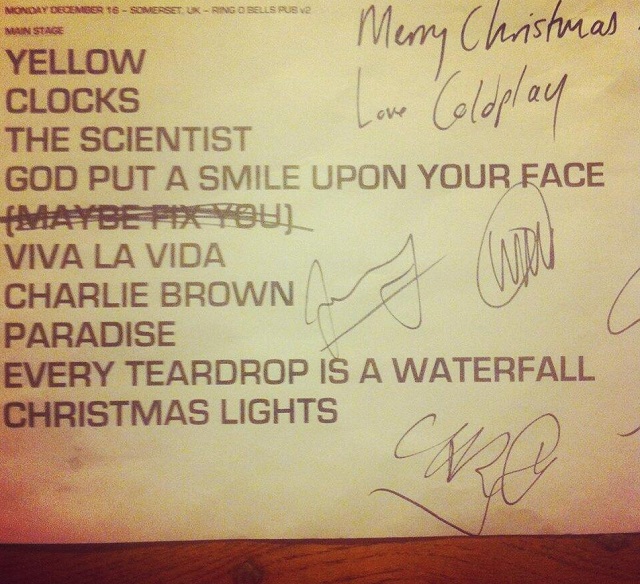 MONDAY DECEMBER 16 - SOMERSET, UK - RING O BELLS PUB v2
MAIN STAGE
Merry Christmas
Love Coldplay
YELLOW
CLOCKS
THE SCIENTIST
GOD PUT A SMILE UPON YOUR FACE
(MAYBE FIX YOU)
VIVA LA VIDA
CHARLIE BROWN
PARADISE
EVERY TEARDROP IS A WATERFALL
CHRISTMAS LIGHTS